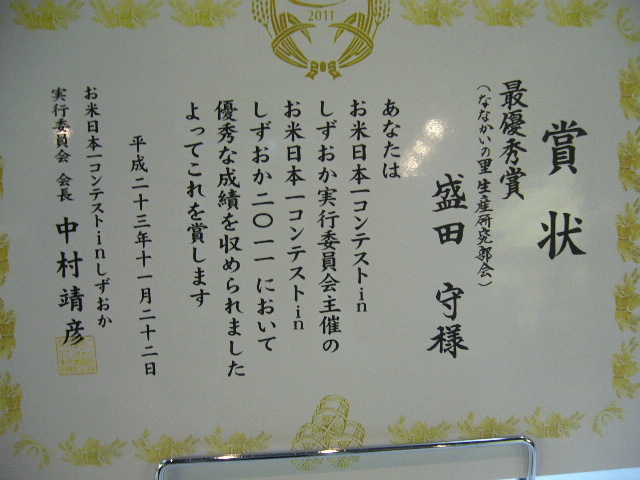 2011
賞状
最優秀賞
(ななかいの里 生産研究部会)
盛田 守様
あなたは
お米日本一コンテストin
しずおか実行委員会主催の
お米日本一コンテストin
しずおか二〇一一において
優秀な成績を収められました
よってこれを賞します
平成二十三年十一月二十二日
お米日本一コンテストinしずおか
実行委員会 会長 中村靖彦